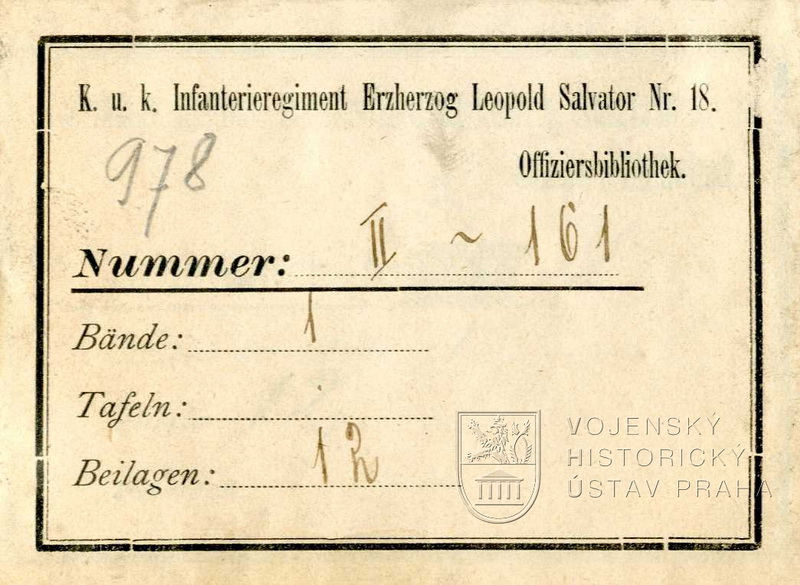 K. u. k. Infanterieregiment Erzherzog Leopold Salvator Nr. 18.
978
Offiziersbibliothek.
Nummer: II ~ 161
Bände: 1
Tafeln:
Beilagen: 12
VOJENSKÝ
HISTORICKÝ
ÚSTAV PRAHA